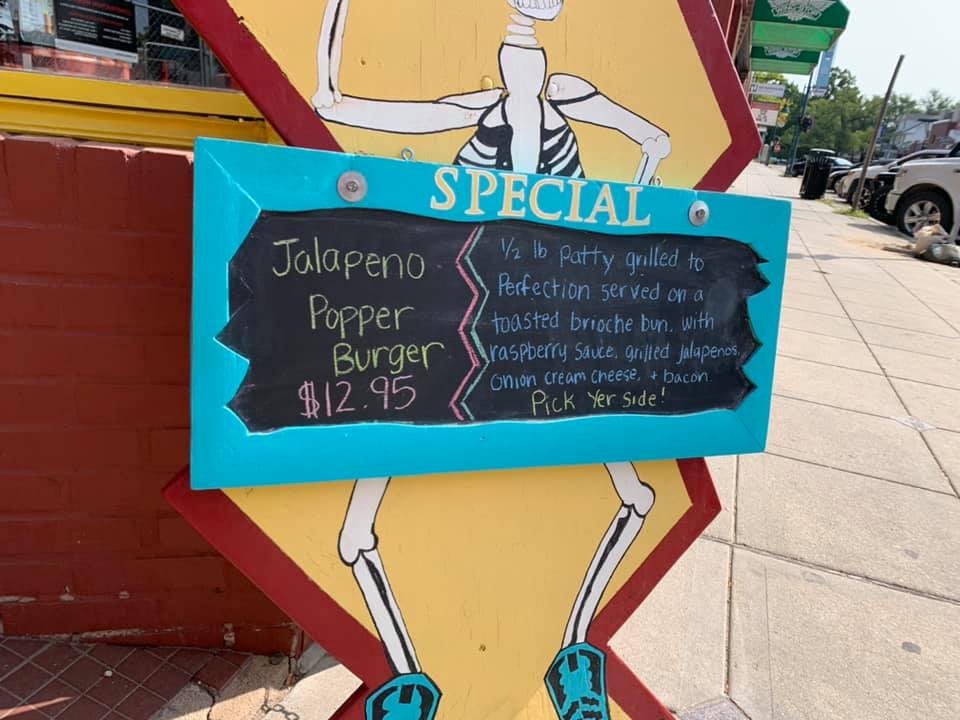 SPECIAL
Jalapeno
Popper
Burger
$12.95
1/2 lb patty grilled to
Perfection served on a
toasted brioche bun. with
raspberry sauce, grilled jalapenos,
onion cream cheese, + bacon.
Pick Yer side!